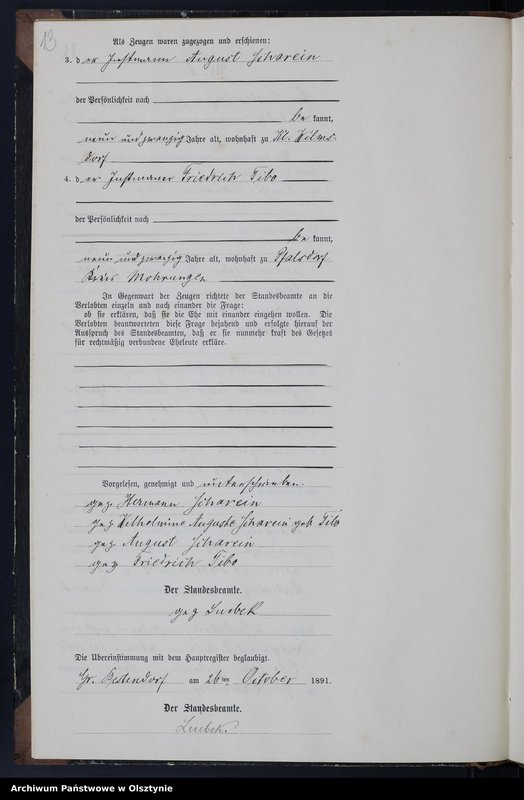 13
Als Zeugen waren zugezogen und erschienen:
3. der Instmann August Scharein
der Persönlichkeit nach
be kannt,
neun und zwanzig Jahre alt, wohnhaft zu Kl. Wilms-
dorf
4. der Instmann Friedrich Tibo
der Persönlichkeit nach
be kannt,
neun und zwanzig Jahre alt, wohnhaft zu
Kreis Mohrungen
In Gegenwart der Zeugen richtete der Standesbeamte an die
Verlobten einzeln und nach einander die Frage:
ob sie erklären, daß sie die Ehe mit einander eingehen wollen. Die
Verlobten beantworteten diese Frage bejahend und erfolgte hierauf der
Ausspruch des Standesbeamten, daß er sie nunmehr kraft des Gesetzes
für rechtmäßig verbundene Eheleute erkläre.
Vorgelesen, genehmigt und unterschrieben.
gez Hermann Scharein
gez Wilhelmine Auguste Scharein geb Tibo
gez August Scharein
gez Friedrich Tibo
Der Standesbeamte.
gez Luebek
Die Übereinstimmung mit dem Hauptregister beglaubigt.
Gr. Bestendorf am 26ten October 1891.
Der Standesbeamte.
Luebek.
Archiwum Państwowe w Olsztynie